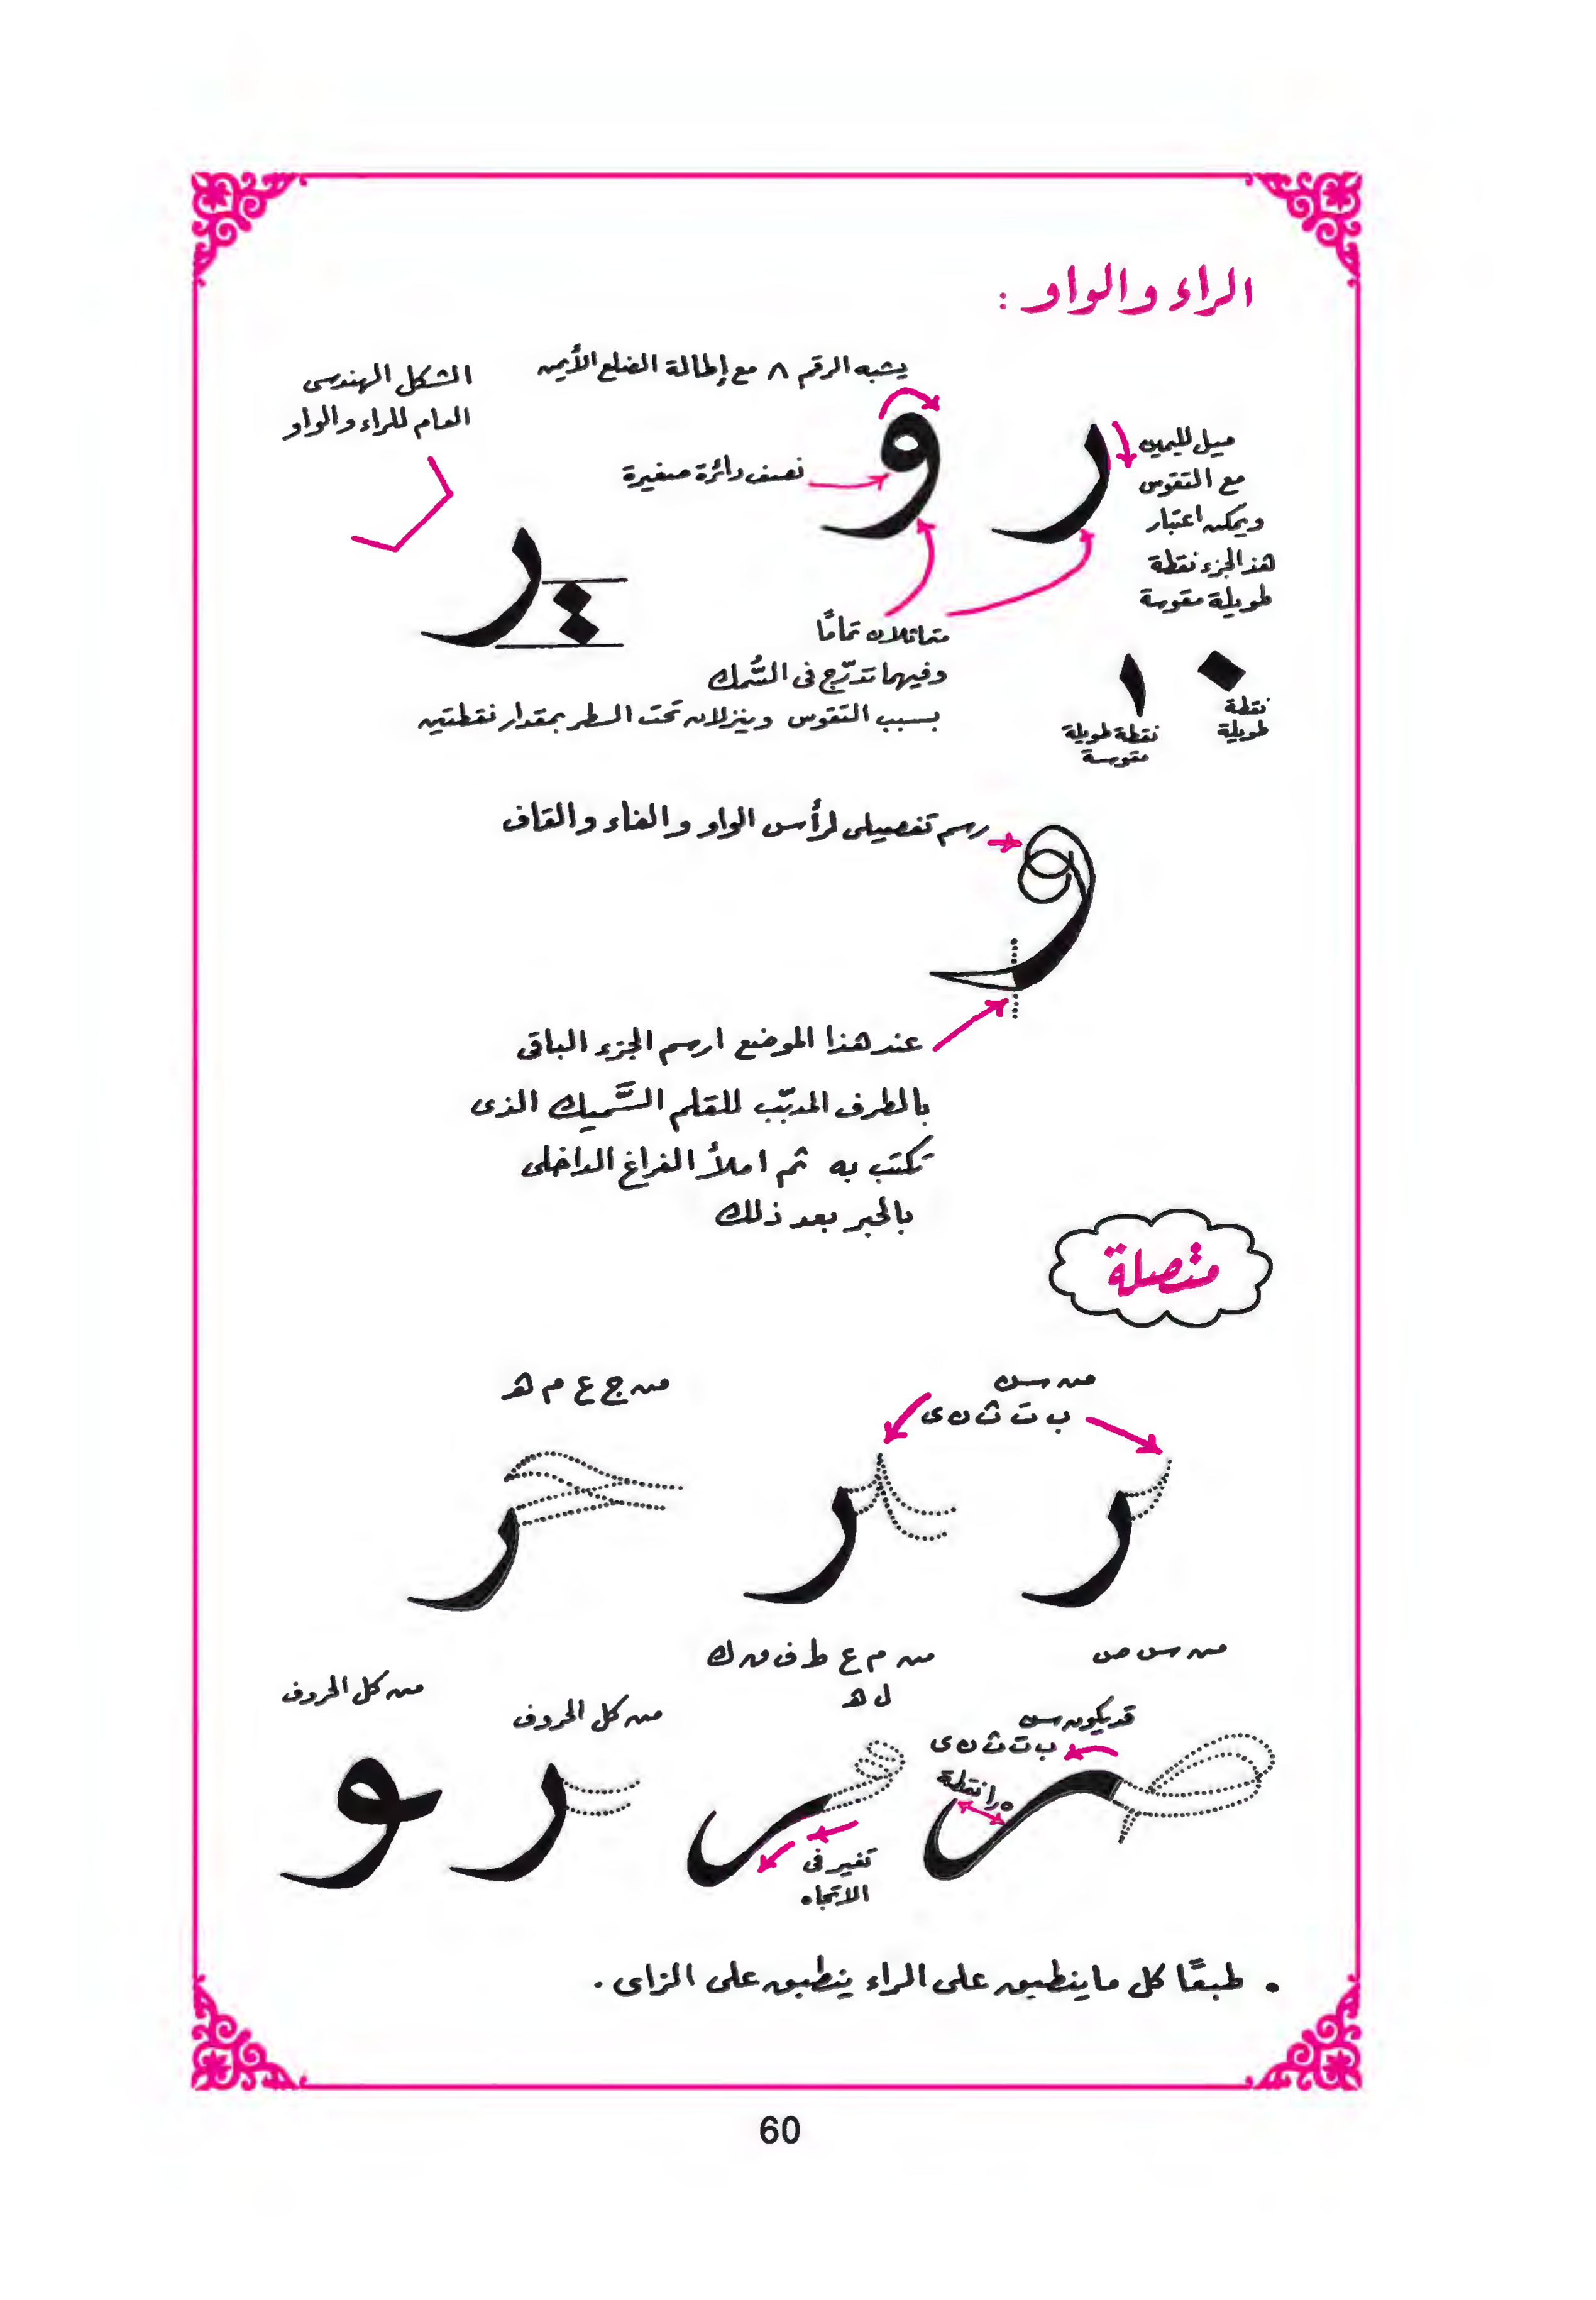 الراء والواو :
يشبه الرقم ٨ مع إطالة الضلع الأيمن
الشكل الهندسى
العام للراء والواو
و
ر
ميل لليمين
مع التقوس
ويمكن اعتبار
هذ الجزء نقطة
طويلة مقوسة
نصف دائرة صغيرة
ر
متماثلان تمامًا
وفيهما تدرّج فى السُّمك
بسبب التقوس وينزلان تحت السطر بمقدار نقطتين
نقطة
طويلة
نقطة طويلة
مقوسة
رسم تفصيلى لرأس الواو والفاء والقاف
و
عند هذا الموضع ارسم الجزء الباقى
بالطرف المدبّب للقلم السَّميك الذى
تكتب به ثم املأ الفراغ الداخلى
بالحبر بعد ذلك
متصلة
من س
ب ت ث ن ى
من ج ع م هـ
ر
ر
ر
من س ص
من م ع ط ف ق ك
ل هـ
من كل الحروف
من كل الحروف
قد يكون س
ب ت ث ن ى
٥ر١ نقطة
تغير فى
الاتجاه
ر
و
• طبعًا كل ما ينطبق على الراء ينطبق على الزاى .
60